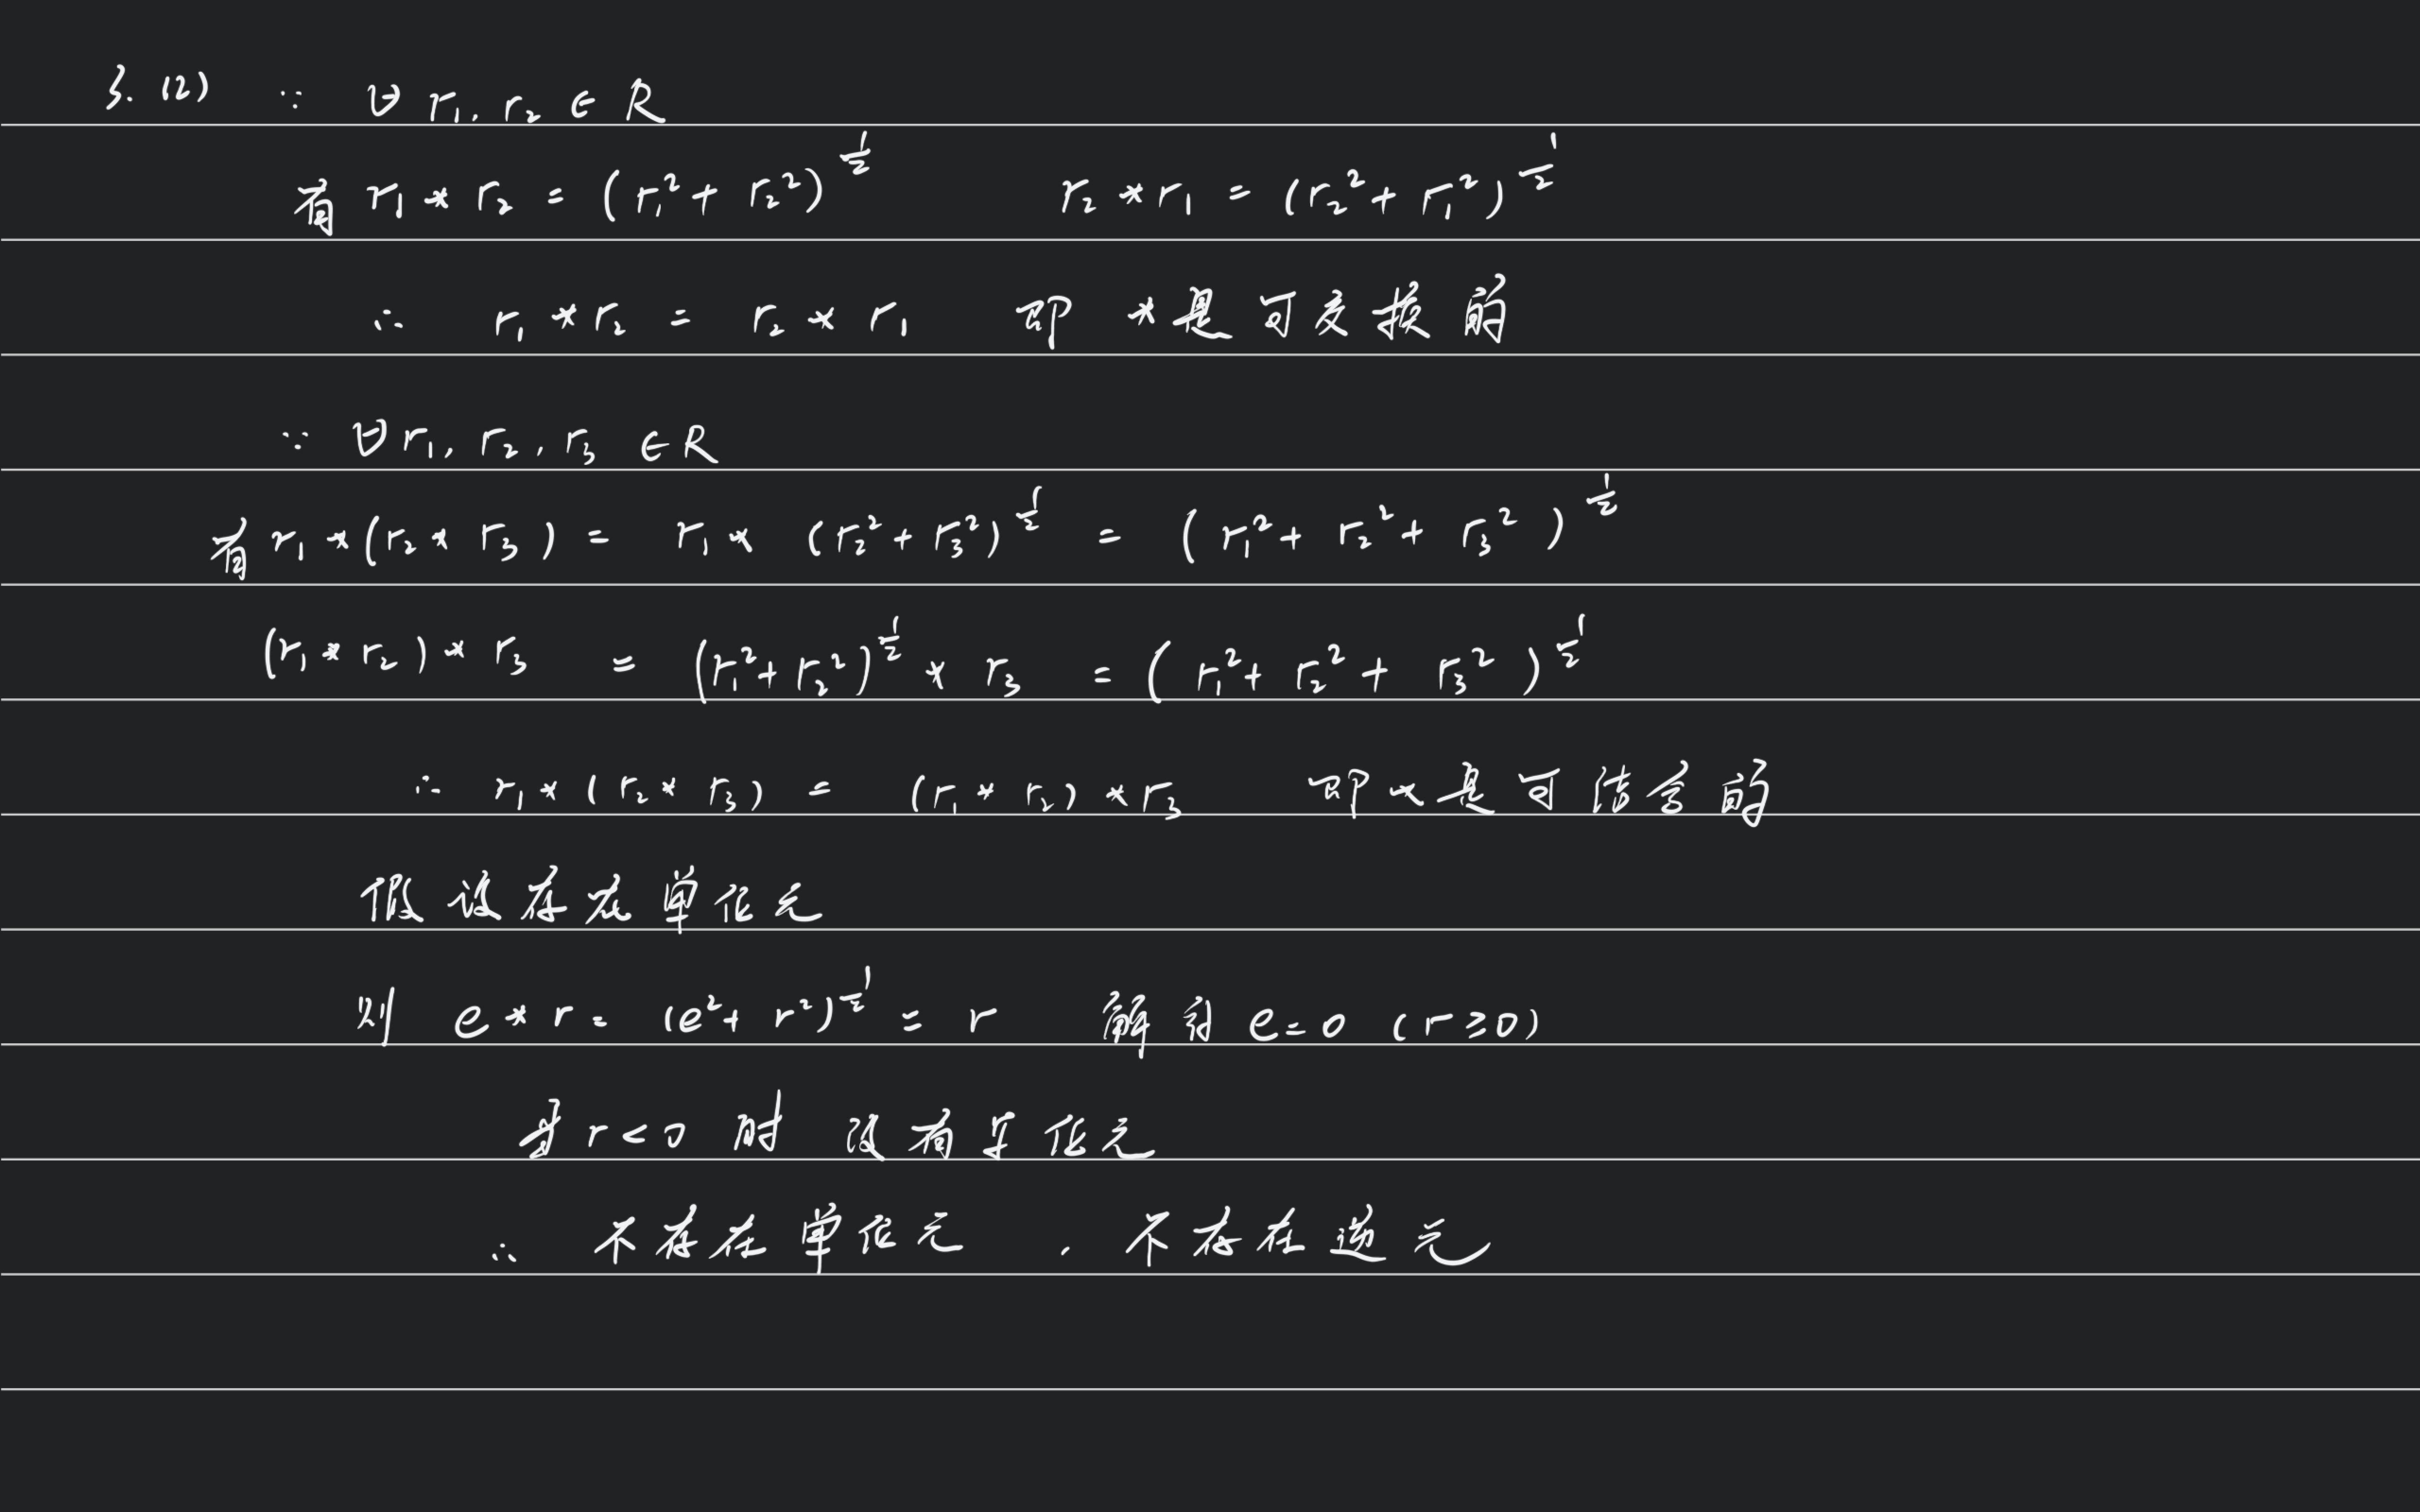 3. (2) ∵ ∀ r₁, r₂ ∈ R
有 r₁ * r₂ = (r₁² + r₂²)^½ r₂ * r₁ = (r₂² + r₁²)^½
∴ r₁ * r₂ = r₂ * r₁ 即 * 是可交换的
∵ ∀ r₁, r₂, r₃ ∈ R
有 r₁ * (r₂ * r₃) = r₁ * (r₂² + r₃²)^½ = (r₁² + r₂² + r₃²)^½
(r₁ * r₂) * r₃ = (r₁² + r₂²)^½ * r₃ = (r₁² + r₂² + r₃²)^½
∴ r₁ * (r₂ * r₃) = (r₁ * r₂) * r₃ 即 * 是可结合的
假设存在单位元
则 e * r = (e² + r²)^½ = r 解得 e = 0 (r ≥ 0)
当 r < 0 时 没有单位元
∴ 不存在单位元, 不存在逆元